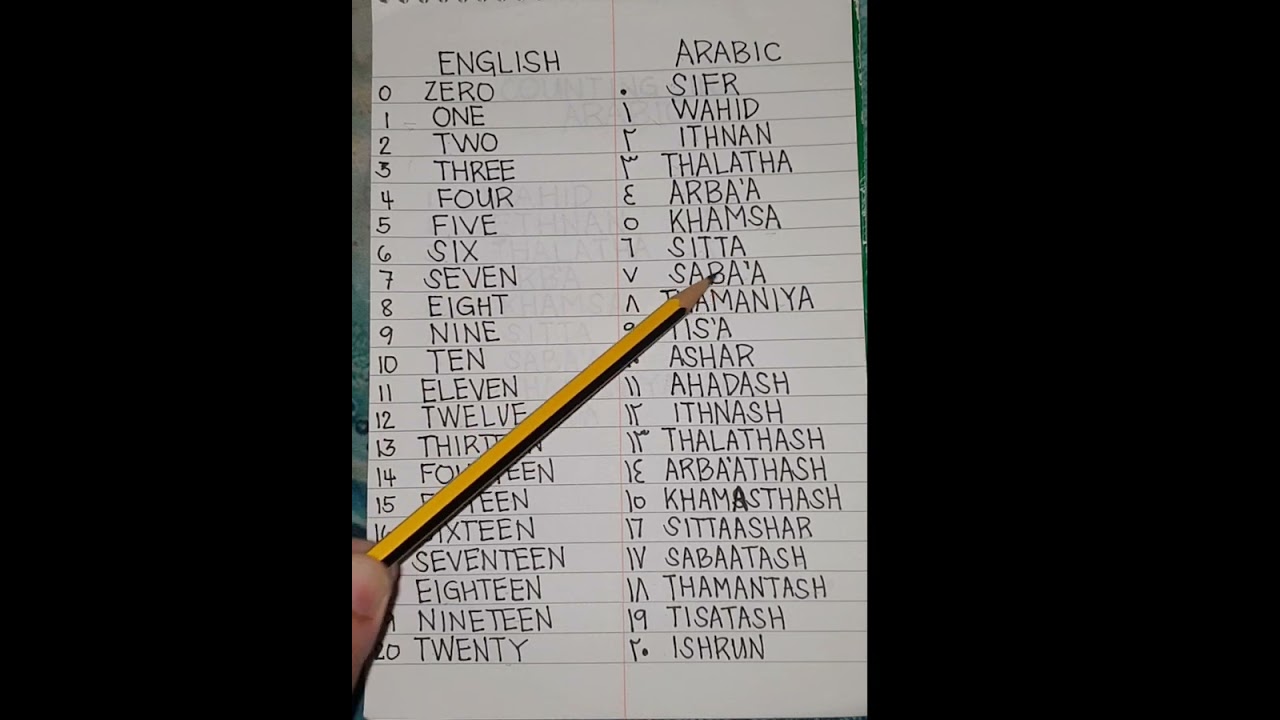 ENGLISH ARABIC
0 ZERO ٠ SIFR
1 ONE ١ WAHID
2 TWO ٢ ITHNAN
3 THREE ٣ THALATHA
4 FOUR ٤ ARBA'A
5 FIVE ٥ KHAMSA
6 SIX ٦ SITTA
7 SEVEN ٧ SABA'A
8 EIGHT ٨ THAMANIYA
9 NINE ٩ TIS'A
10 TEN ASHAR
11 ELEVEN ١١ AHADASH
12 TWELVE ١٢ ITHNASH
13 THIRTEEN ١٣ THALATHASH
14 FOURTEEN ١٤ ARBA'ATHASH
15 FIFTEEN ١٥ KHAMASTHASH
16 SIXTEEN ١٦ SITTAASHAR
SEVENTEEN ١٧ SABAATASH
EIGHTEEN ١٨ THAMANTASH
NINETEEN ١٩ TISATASH
20 TWENTY ٢٠ ISHRUN